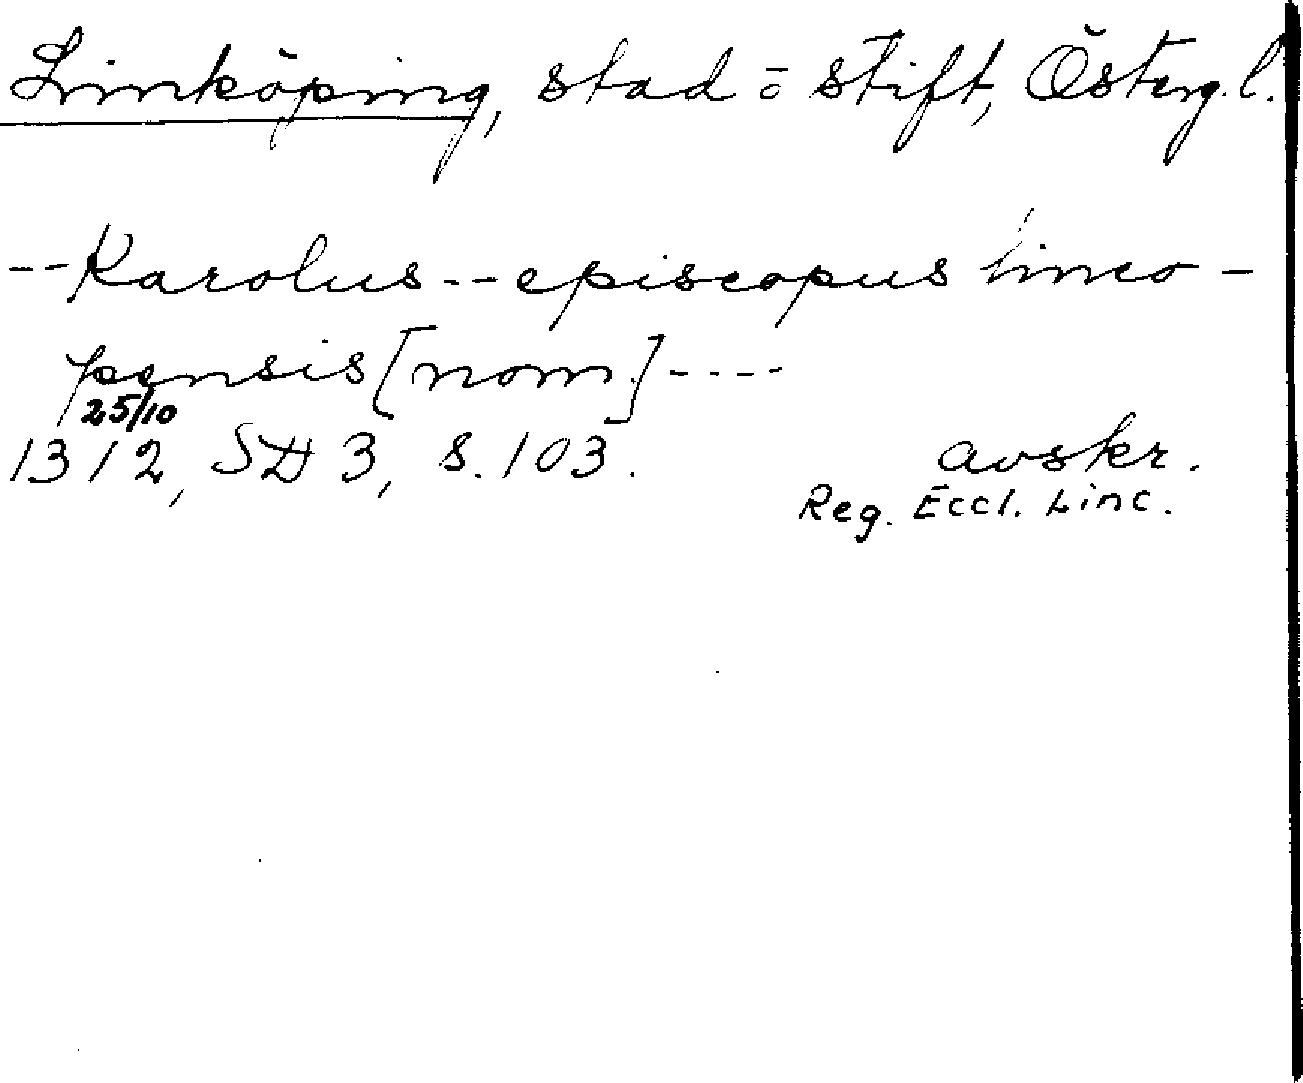 Linköping, stad o stift, Österg.l.
--Karolus--episcopus linco-
pensis [nom.]----
25/10
1312, SD 3, s. 103. avskr.
Reg. Eccl. Linc.